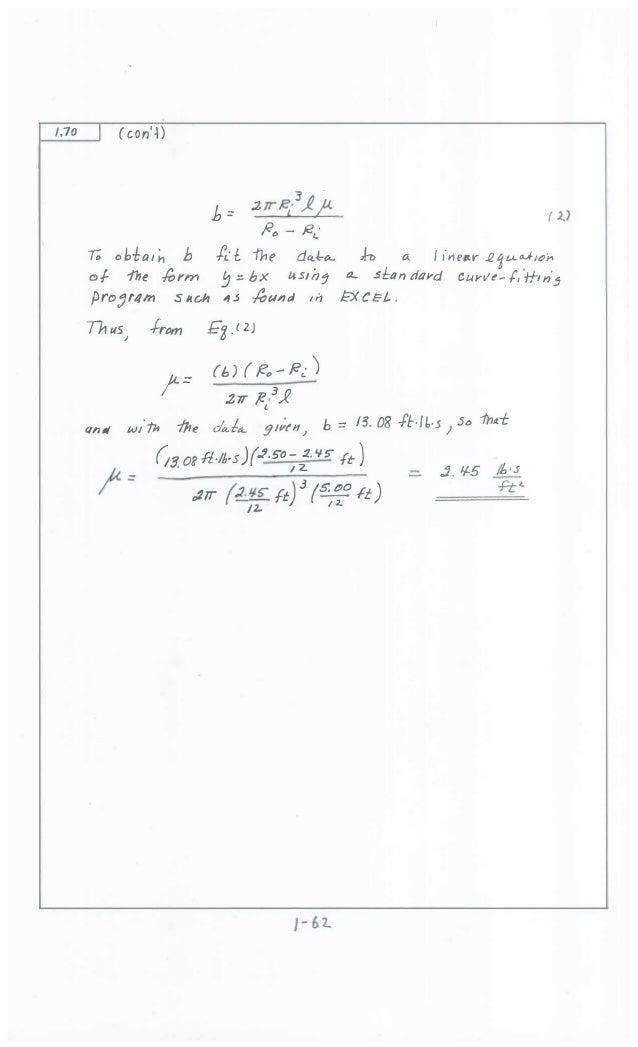 1.70 (con't)
b = 2πRᵢ³ℓμ / (Rₒ - Rᵢ) (2)
To obtain b fit the data to a linear equation
of the form y = bx using a standard curve-fitting
program such as found in EXCEL.
Thus, from Eq.(2)
μ = (b)(Rₒ - Rᵢ) / (2π Rᵢ³ℓ)
and with the data given, b = 13.08 ft·lb·s, so that
μ = (13.08 ft·lb·s)((2.50 - 2.45)/12 ft) / (2π (2.45/12 ft)³ (5.00/12 ft)) = 2.45 lb·s/ft²
1-62